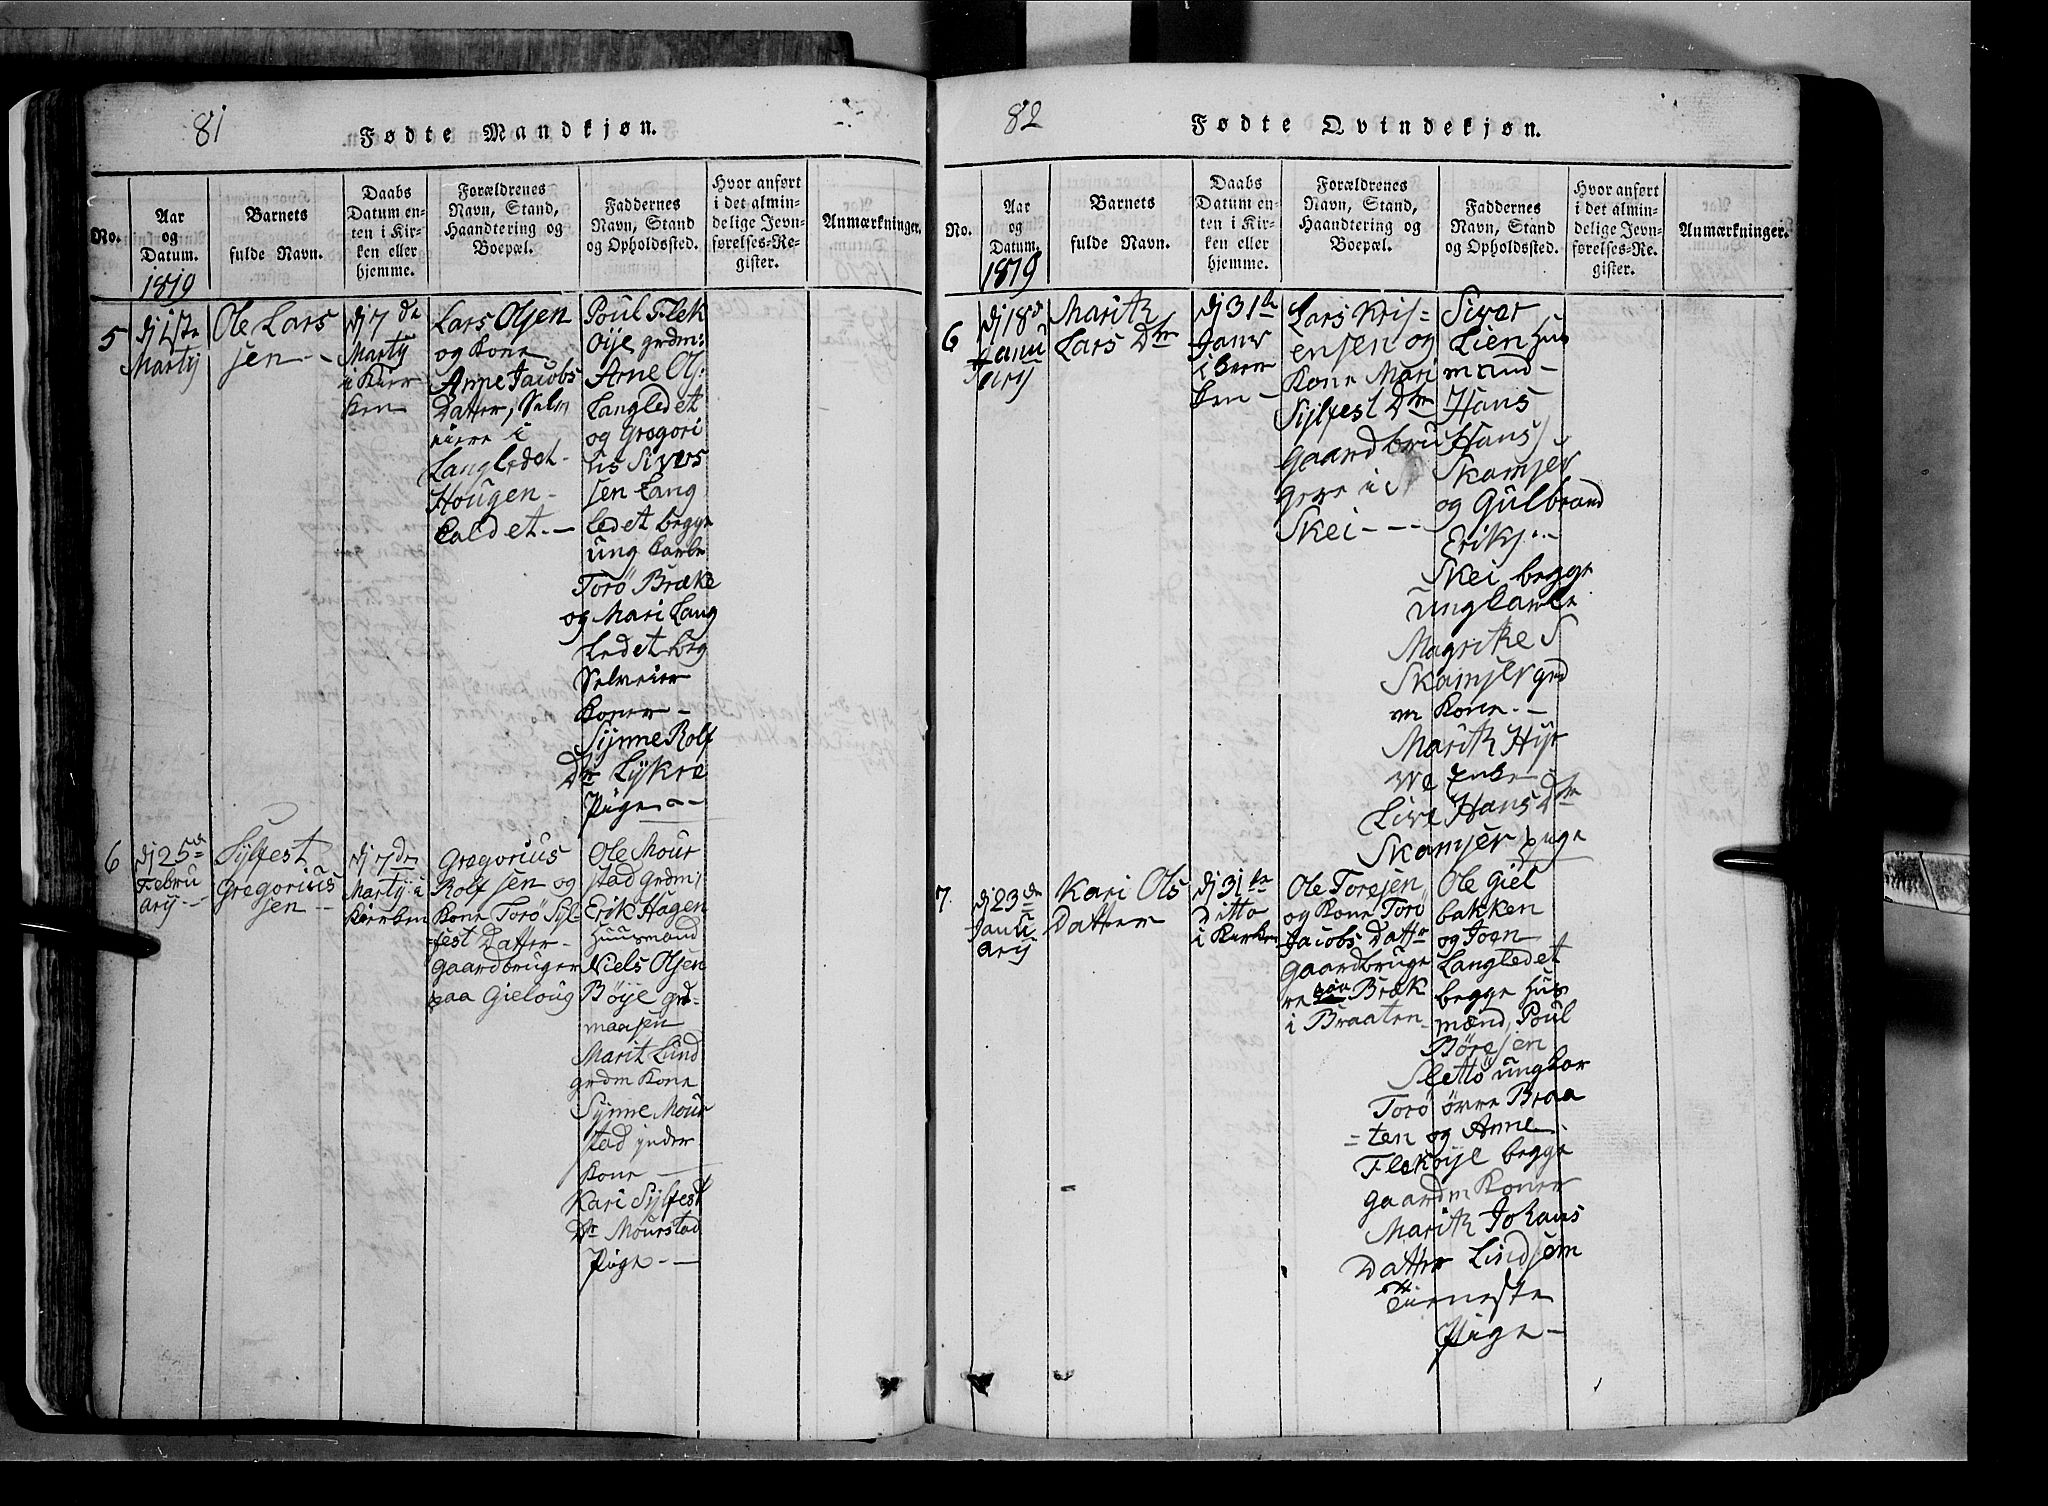 81
Fødte Mandkjøn.
No.
Aar
og
Datum.
1819
Barnets
fulde Navn.
Daabs
Datum en-
ten i Kir-
ken eller
hjemme.
Forældrenes
Navn, Stand,
Haandtering og
Boepæl.
Faddernes
Navn, Stand
og Opholdssted.
Hvor anført
i det almin-
delige Jevn-
førelses-Re-
gister.
Anmærkninger.
5
dj 1ste
Martij
Ole Lars
sen --
dj 7de
Martij
i Kier
ken
Lars Olsen
og Kone
Anne Jacobs
Datter, Selv
eiere i
Langledet-
Hougen-
Caldet.--
Poul Flek
Öije grdm:
Arne Ols:
Langledet
og Gregori
us Sivers
sen Lang
ledet begge
ung Carle
Torö Bræke
og Mari Lang
Ledet beg
Selveier
Koner -
Synne Rolf
Dr Lykre
Pige --
6
dj 25de
Febru
arij --
Sylfest
Gregorius
sen --
dj 7de
Martij i
Kierken
Gregorius
Rolfsen og
Kone Torö Syl-
=fest Datter-
Gaardbruger
paa Gieloug
Ole Mour
stad Grdm:
Erik Hagen
Huusmand
Niels Olsen
Böije grd-
maasen
Marit Lund
grdm Kone
Synne Mour
stad
Kone
Kari Sylfest
Dr Mourstad
Pige --
82
Fødte Qvindekjøn.
No.
Aar
og
Datum.
1819
Barnets
fulde Navn.
Daabs
Datum en-
ten i Kir-
ken eller
hjemme.
Forældrenes
Navn, Stand,
Haandtering og
Boepæl.
Faddernes
Navn, Stand
og Opholdssted.
Hvor anført
i det almin-
delige Jevn-
førelses-Re-
gister.
Anmærkninger.
6
dj 18de
Janu
arij
Marith
Lars Dtr
dj 31te
Janr
i Kier
ken -
Lars Kris=
ensen og
Kone Mari
Sylfest Dtr
Gaardbru
gere i
Skei ---
Siver
Lien Hus
mand -
Hans
Hans
Skamser
og Gulbrand
Eriks --
Skei begge
ungkarle
Magrite S
Skamser grd
m Kone --
Marith Hyr
ve Enke
Live Hans Dtr
Skamser pige
7.
dj 23de
Janu
arij
Kari Ols
Datter
dj 31te
Ditto
i Kierken
Ole Toresen
og Kone Torö
Jacobs Datter
Gaardbruge
re paa Bræk
i Braaten
Ole Giel
bakken
og Joen
Langledet
begge Hus
mænd, Poul
Böresen
Slettö ungkar
Torö övre Braa
=ten og Anne
Flekøije begge
gaardm Koner
Marith Johans
Datter Lindsem
Tieneste
Pige -